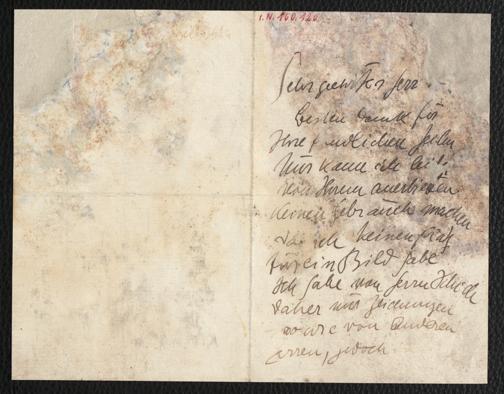 I.N. 160.126
Sehr geehrter Herr
besten Dank für
Ihre freundlichen Zeilen
Nur kann ich leider
von Ihrem anerbieten
keinen gebrauch machen
da ich keinen
für ein Bild habe
Ich habe von Herrn Schiele
daher nur Zeichnungen
sowie von anderen
jedoch